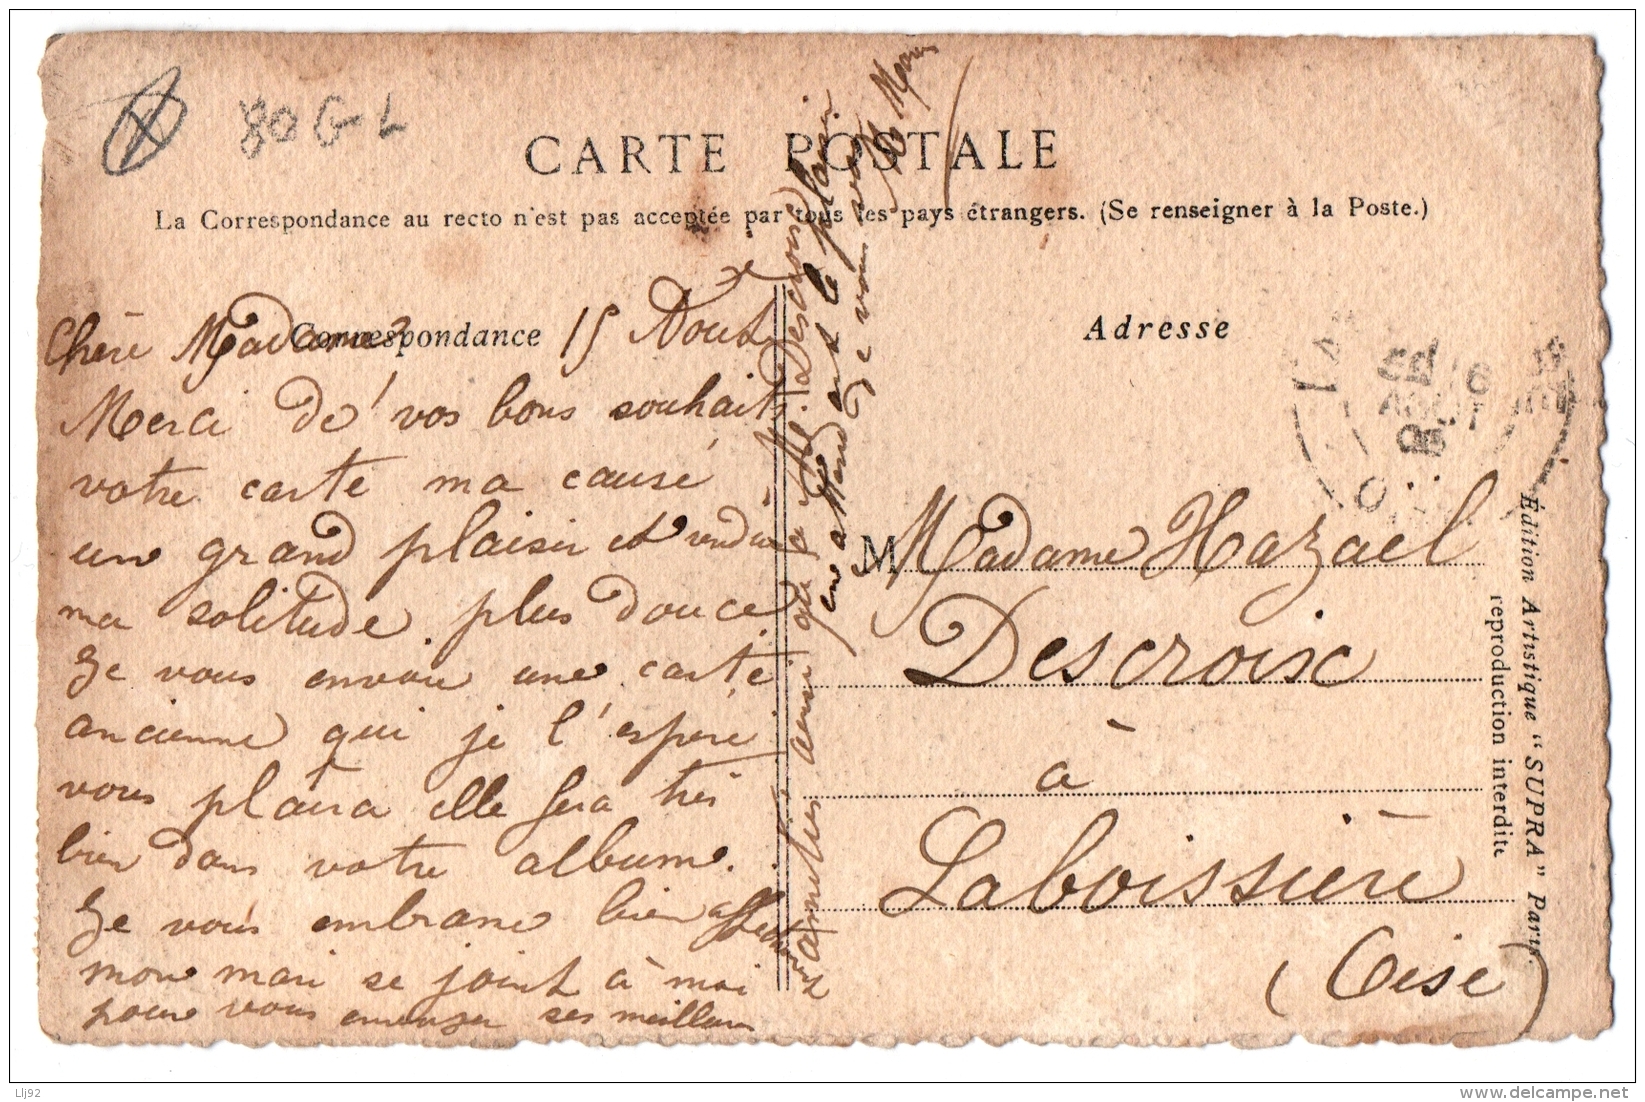 80 G L
CARTE POSTALE
La Correspondance au recto n'est pas acceptée par tous les pays étrangers. (Se renseigner à la Poste.)
Correspondance
Adresse
15 Août
Chère Madame
Merci de vos bons souhaits
votre carte ma causé
un grand plaisir et rendu
ma solitude plus douce
Je vous envoie une carte
ancienne qui je l'espère
vous plaira elle sera très
bien dans votre album.
Je vous embrasse bien affectueusement
mon mari se joint à moi
pour vous envoyer ses meilleurs
amitiés ainsi qu'a M. Descroix
en attendant le plaisir
de vous voir
M Madame Hazael
Descroix
à
Laboissière
(Oise)
16
AOUT
OISE
Édition Artistique "SUPRA" Paris.
reproduction interdite
Llj92
www.delcampe.net